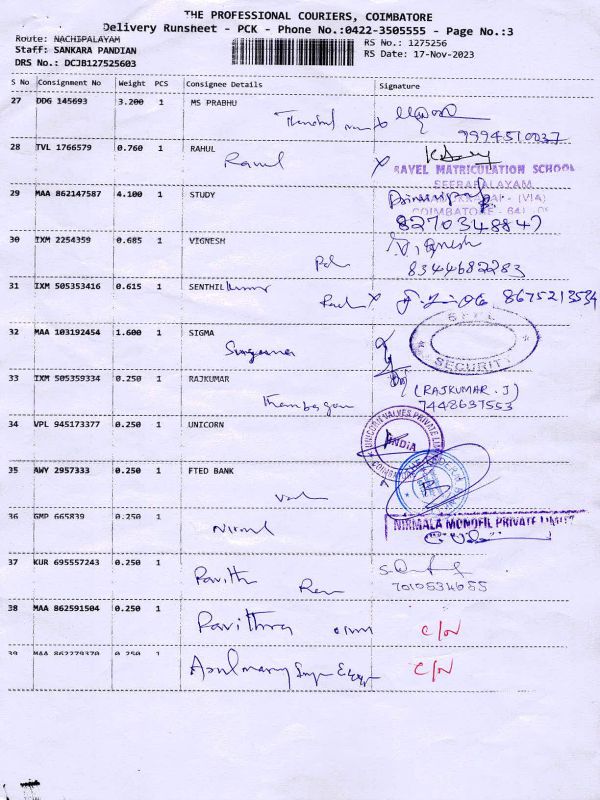 THE PROFESSIONAL COURIERS, COIMBATORE
Delivery Runsheet - PCK - Phone No.:0422-3505555 - Page No.:3
Route: NACHIPALAYAM
RS No.: 1275256
Staff: SANKARA PANDIAN
RS Date: 17-Nov-2023
DRS No.: DCJB127525603
S No Consignment No Weight PCS Consignee Details Signature
27 DDG 145693 3.200 1 MS PRABHU
9994510037
28 TVL 1766579 0.760 1 RAHUL
RAVEL MATRICULATION SCHOOL
SEERAPALAYAM
29 MAA 862147587 4.100 1 STUDY
(VIA)
COIMBATORE - 641
8270348847
30 IXM 2254359 0.685 1 VIGNESH
Vignesh
8344682283
31 IXM 505353416 0.615 1 SENTHIL Kumar
8675213534
32 MAA 103192454 1.600 1 SIGMA
SECURITY
33 IXM 505359334 0.250 1 RAJKUMAR
(RAJKUMAR.J)
7448637553
34 VPL 945173377 0.250 1 UNICORN
UNICORN VALVES PRIVATE LIMITED
INDIA
35 AWY 2957333 0.250 1 FTED BANK
36 GMP 665839 0.250 1
Nirmal
NIRMALA MONOFIL PRIVATE LIMITED
37 KUR 695557243 0.250 1
Pavithr
7010534655
38 MAA 862591504 0.250 1
Pavithra
C/N
39 MAA 862279370 0.250 1
C/N